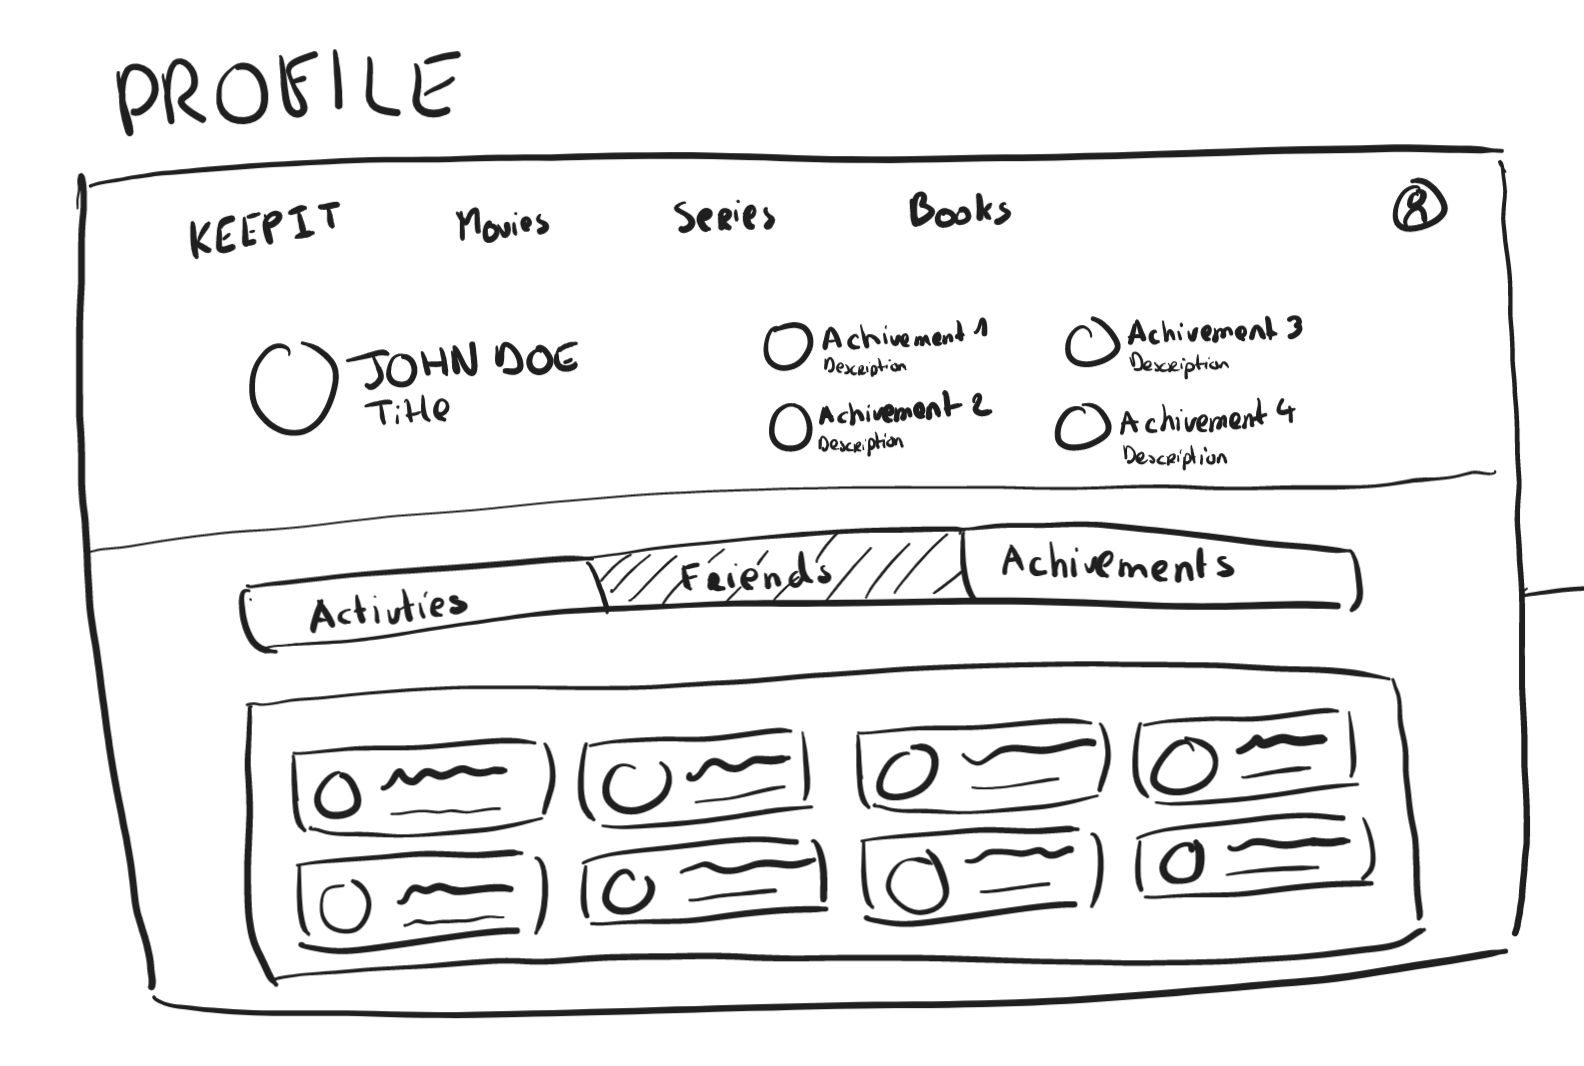 PROFILE
KEEPIT Movies Series Books
JOHN DOE
Title
Achivement 1
Description
Achivement 2
Description
Achivement 3
Description
Achivement 4
Description
Activties Friends Achivements